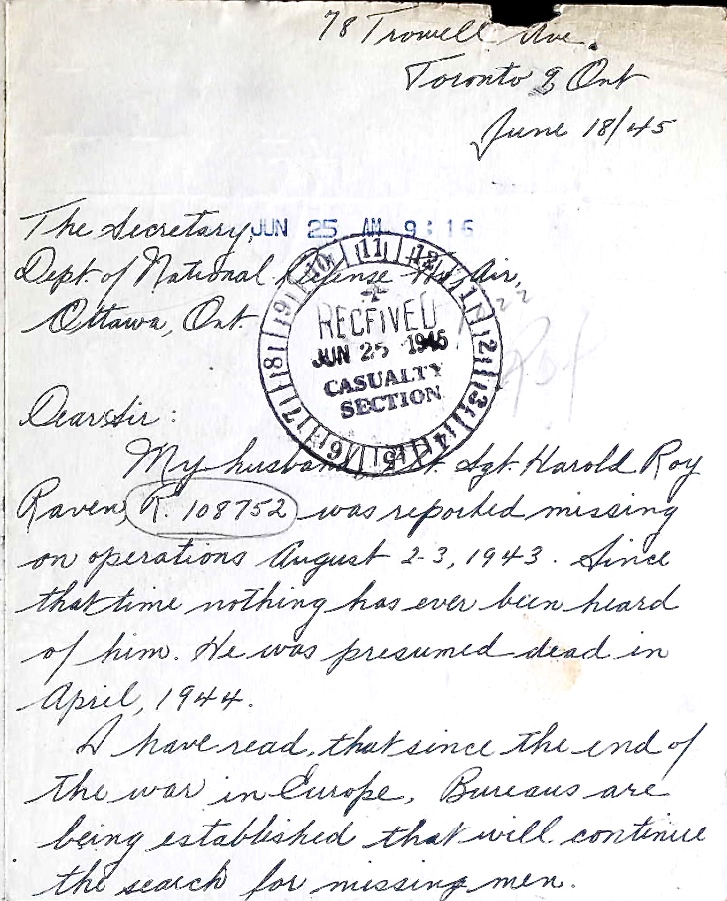 78 Trowell Ave.
Toronto 9 Ont
June 18/45
JUN 25 AM 9:16
The Secretary,
Dept. of National Defense for Air,
Ottawa, Ont.
10 11 12 1 2 3 4 5 6 7 8 9
RECEIVED
JUN 25 1945
CASUALTY
SECTION
Dear Sir:
My husband Flt. Sgt. Harold Roy
Raven, R. 108752 was reported missing
on operations August 2-3, 1943. Since
that time nothing has ever been heard
of him. He was presumed dead in
April, 1944.
I have read, that since the end of
the war in Europe, Bureaus are
being established that will continue
the search for missing men.